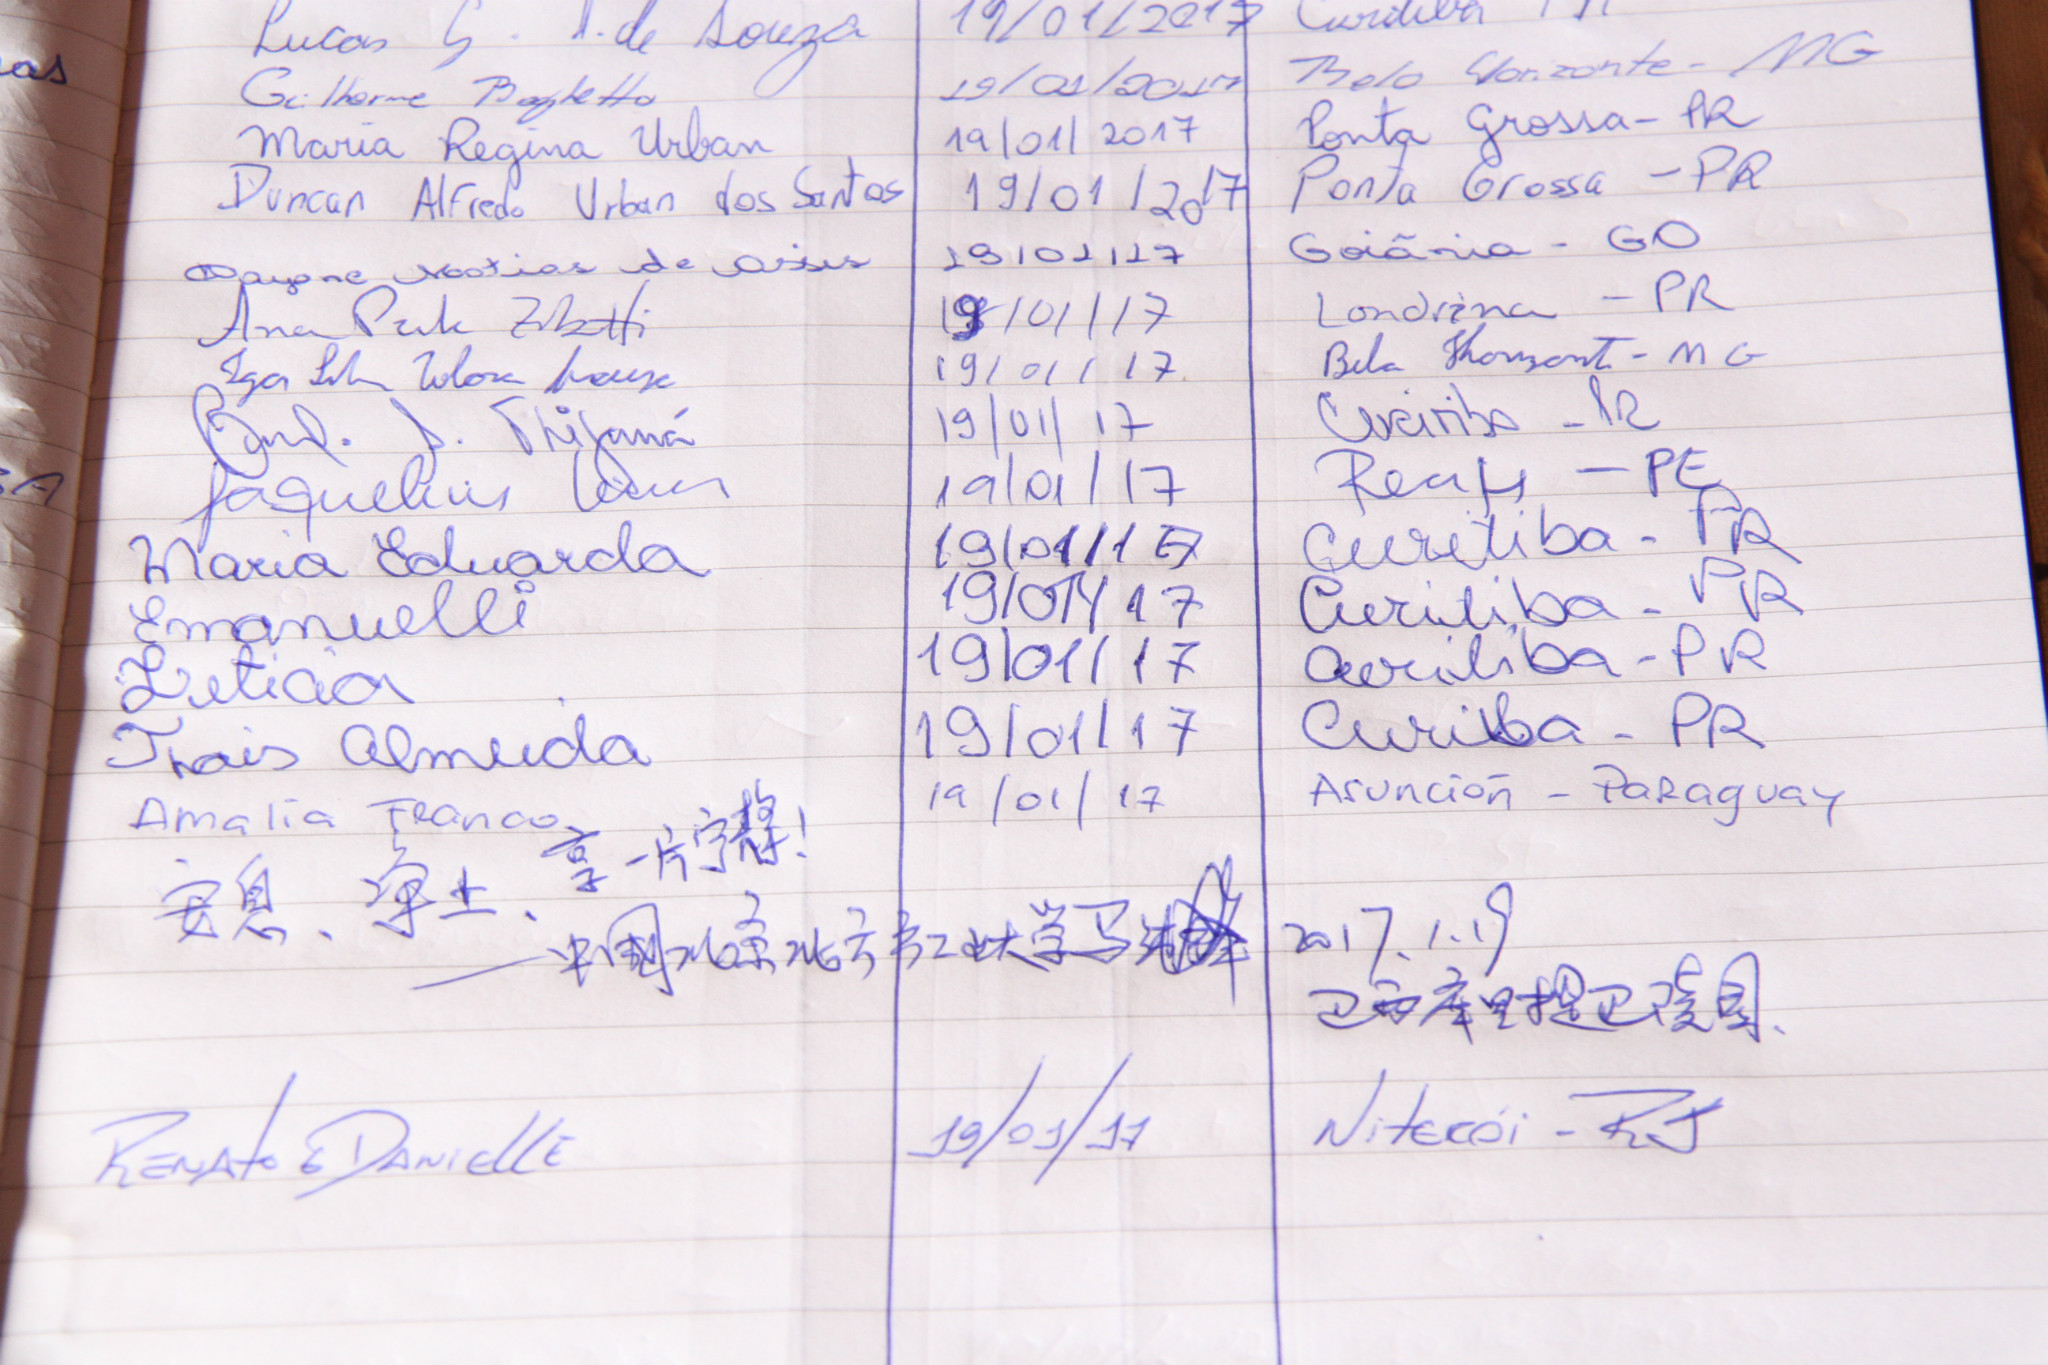 as
Lucas G. A. de Souza 19/01/2017 Curitiba PR
Guilherme 19/01/2017 Belo Horizonte - MG
Maria Regina Urban 19/01/2017 Ponta Grossa - PR
Duncan Alfredo Urban dos Santos 19/01/2017 Ponta Grossa - PR
Dayane Matias de Assis 19/01/17 Goiânia - GO
Ana 19/01/17 Londrina - PR
19/01/17 MG
19/01/17 Curitiba - PR
Jaqueline 19/01/17 Recife - PE
Maria Eduarda 19/01/17 Curitiba - PR
Emanuelli 19/01/17 Curitiba - PR
Leticia 19/01/17 Curitiba - PR
Thais Almeida 19/01/17 Curitiba - PR
Amalia Franco 19/01/17 Asunción - Paraguay
安息、净土、享一片宁静!
——中国北京北方工业大学马 2017.1.19
巴西库里提巴陵园.
Renato & Danielle 19/01/17 Niterói - RJ